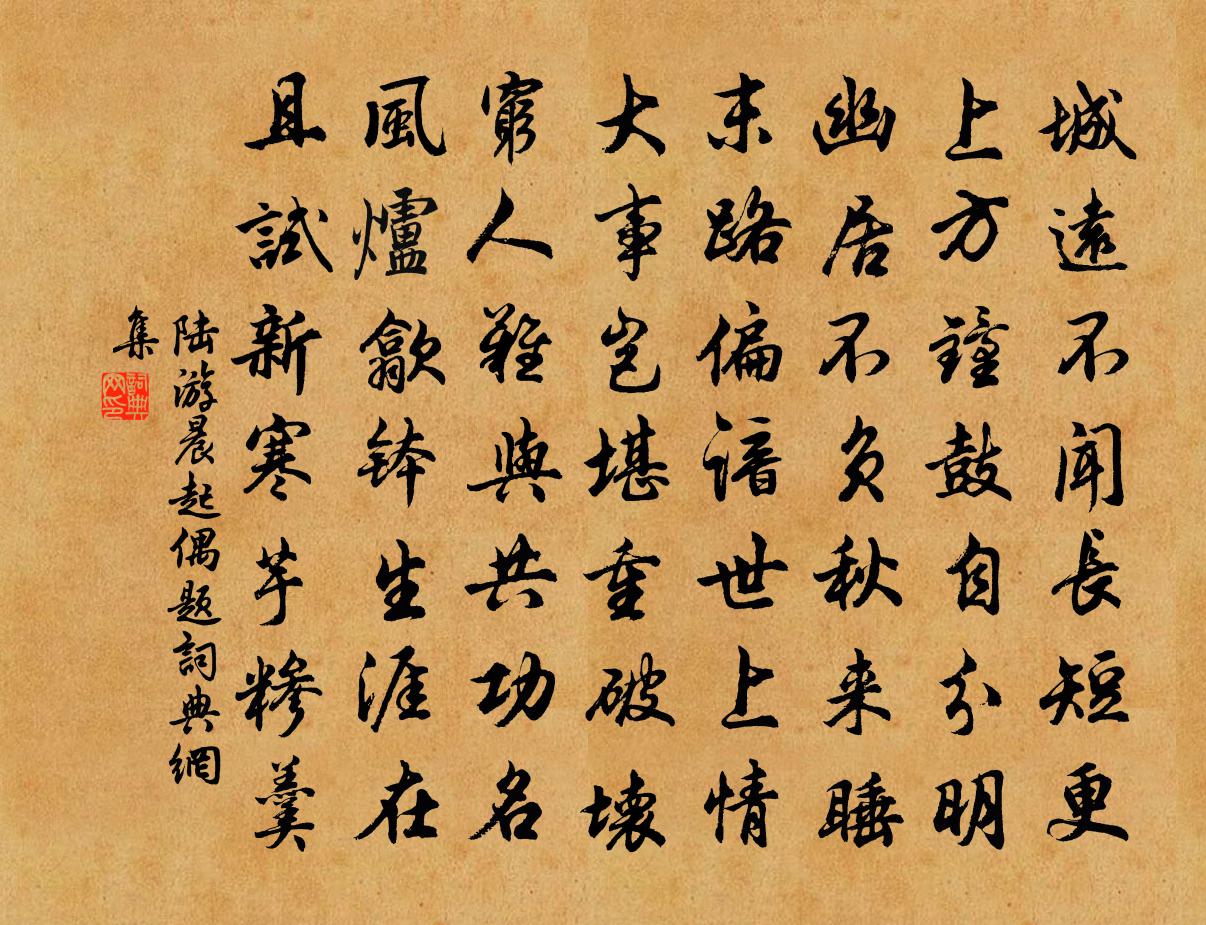 城遠不聞長短更
上方鐘鼓自分明
幽居不負秋来睡
末路偏諳世上情
大事豈堪重破壞
窮人難與共功名
風爐歙缽生涯在
且試新寒芋糝羹
陆游晨起偶题詞典網
集
詞典
网印